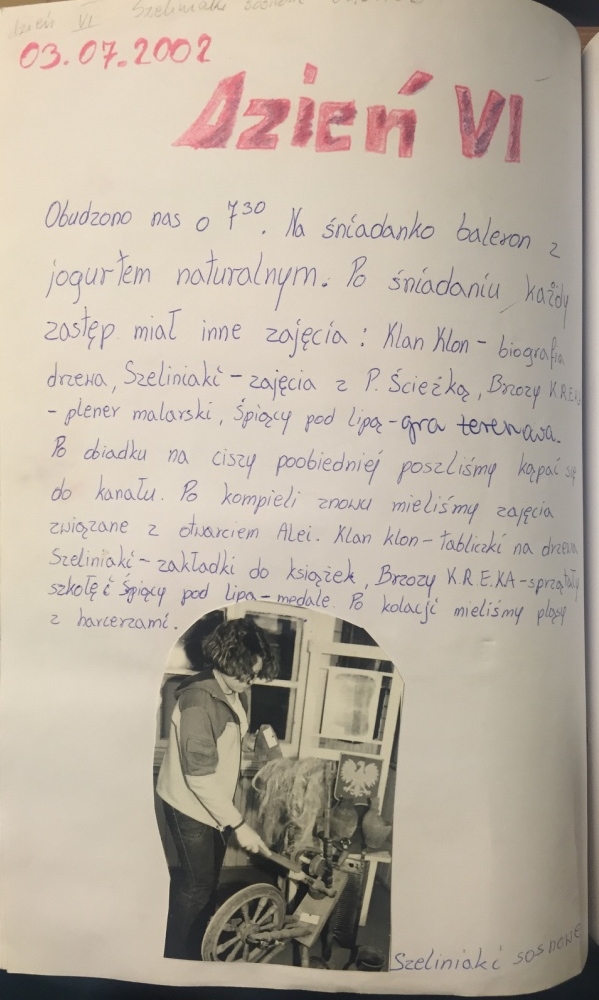 dzień VI Szeliniaki sosnowe
03.07.2002
Dzień VI
Obudzono nas o 7³⁰. Na śniadanko baleron z
jogurtem naturalnym. Po śniadaniu każdy
zastęp miał inne zajęcia : Klan Klon - biografia
drzewa, Szeliniaki - zajęcia z P. Ścieżką, Brzozy K.R.E.KA
- plener malarski, Śpiący pod lipą - gra terenowa.
Po obiadku na ciszy poobiedniej poszliśmy kąpać się
do kanału. Po kompieli znowu mieliśmy zajęcia
związane z otwarciem Alei. Klan klon - tabliczki na drzewa
Szeliniaki - zakładki do książek, Brzozy K.R.E.KA - sprzątały
szkołę i śpiący pod lipa - medale. Po kolacji mieliśmy pląsy
z harcerzami.
Szeliniaki sosnowe